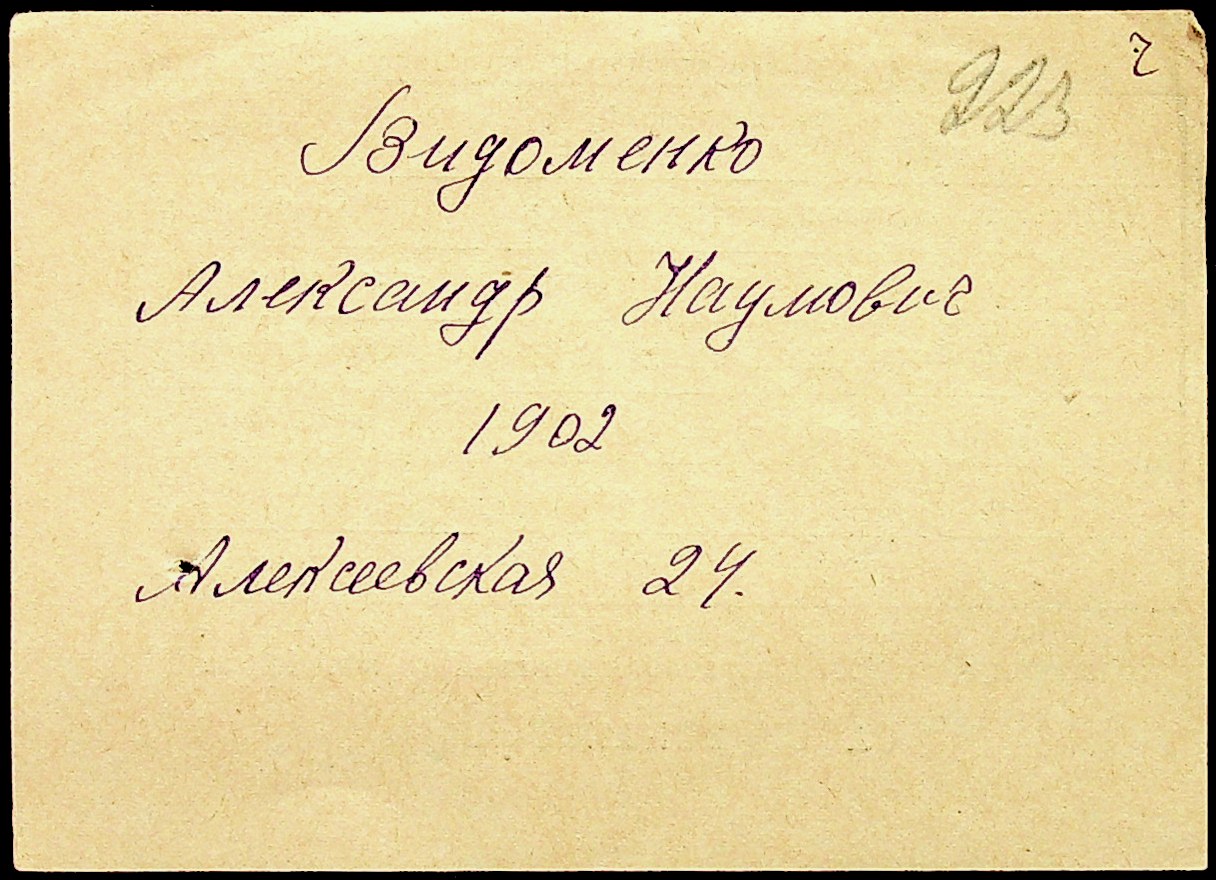 223
Видоменко
Александр Наумович
1902
Алексеевская 24.